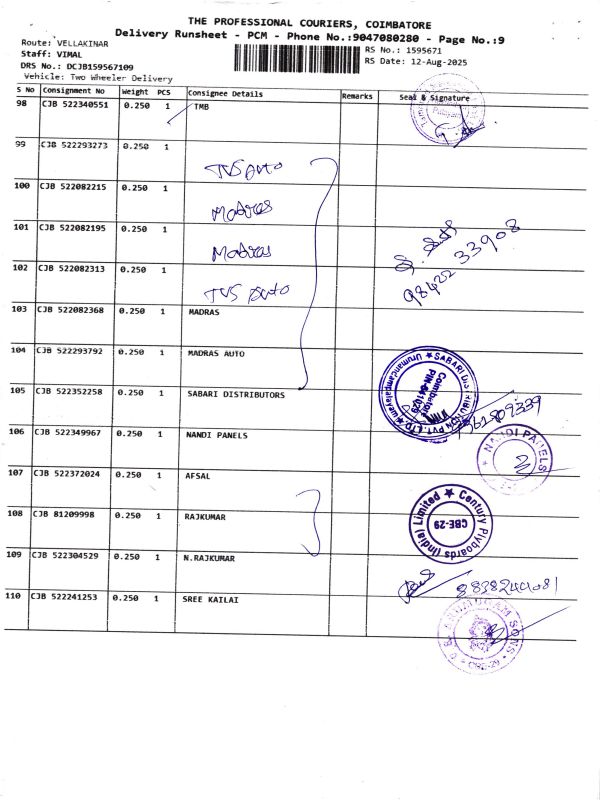 THE PROFESSIONAL COURIERS, COIMBATORE
Delivery Runsheet - PCM - Phone No.:9047080280 - Page No.:9
Route: VELLAKINAR
RS No.: 1595671
Staff: VIMAL
RS Date: 12-Aug-2025
DRS No.: DCJB159567109
Vehicle: Two Wheeler Delivery
S No Consignment No Weight PCS Consignee Details Remarks Seal & Signature
98 CJB 522340551 0.250 1 TMB
99 CJB 522293273 0.250 1 TVS Auto
100 CJB 522082215 0.250 1 Madras
101 CJB 522082195 0.250 1 Madras
102 CJB 522082313 0.250 1 TVS Auto
98422 33908
103 CJB 522082368 0.250 1 MADRAS
104 CJB 522293792 0.250 1 MADRAS AUTO
105 CJB 522352258 0.250 1 SABARI DISTRIBUTORS
SABARI DISTRIBUTION PVT. LTD.
Coimbatore
PIN-641029
106 CJB 522349967 0.250 1 NANDI PANELS
NANDI PANELS
107 CJB 522372024 0.250 1 AFSAL
108 CJB 81209998 0.250 1 RAJKUMAR
Century Plyboards (India) Limited
CBE-29
109 CJB 522304529 0.250 1 N.RAJKUMAR
8838244081
110 CJB 522241253 0.250 1 SREE KAILAI
SONS
CBE-29